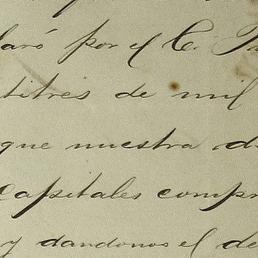 laró por el C. Th
titres de mil
que nuestra d
Capitales compr
y dandonos el de